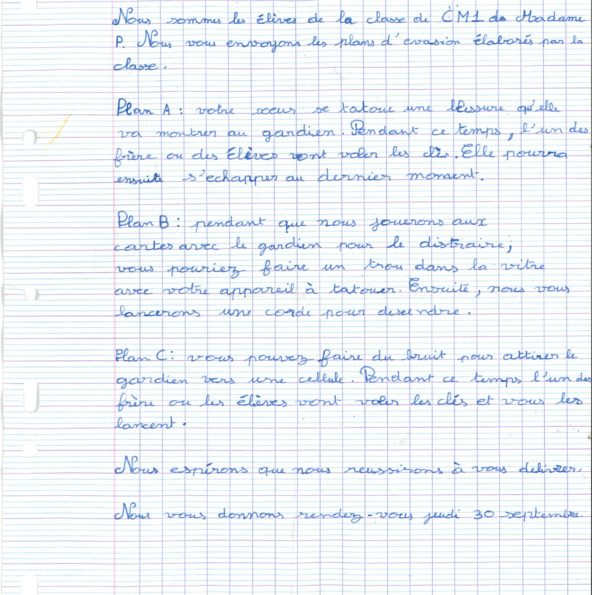 Nous sommes les élèves de la classe de CM1 de Madame
P. Nous vous envoyons les plans d'evasion élaborés par la
classe.
Plan A : votre sœur se tatoue une blessure qu'elle
va montrer au gardien. Pendant ce temps, l'un des
frère ou des élèves vont voler les clés. Elle pourra
ensuite s'echapper au dernier moment.
Plan B : pendant que nous jouerons aux
cartes avec le gardien pour le distraire,
vous pouriez faire un trou dans la vitre
avec votre appareil à tatouer. Ensuite, nous vous
lancerons une corde pour descendre.
Plan C : vous pouvez faire du bruit pour attirer le
gardien vers une cellule. Pendant ce temps l'un des
frère ou les élèves vont voler les clés et vous les
lancent.
Nous espérons que nous reussirons à vous delivrer.
Nous vous donnons rendez-vous jeudi 30 septembre